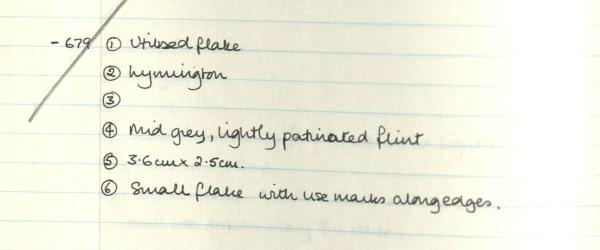 - 679 ① Utilised flake
② Lymington
③
④ Mid grey, lightly patinated flint
⑤ 3.6cm x 2.5cm.
⑥ Small flake with use marks along edges.